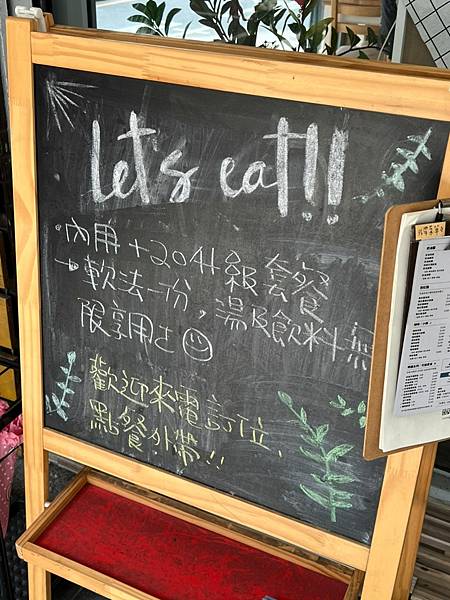 let's eat!!
·內用+20升級套餐
→軟法一份,湯及飲料無
限享用😊
歡迎來電訂位、
點餐外帶!!